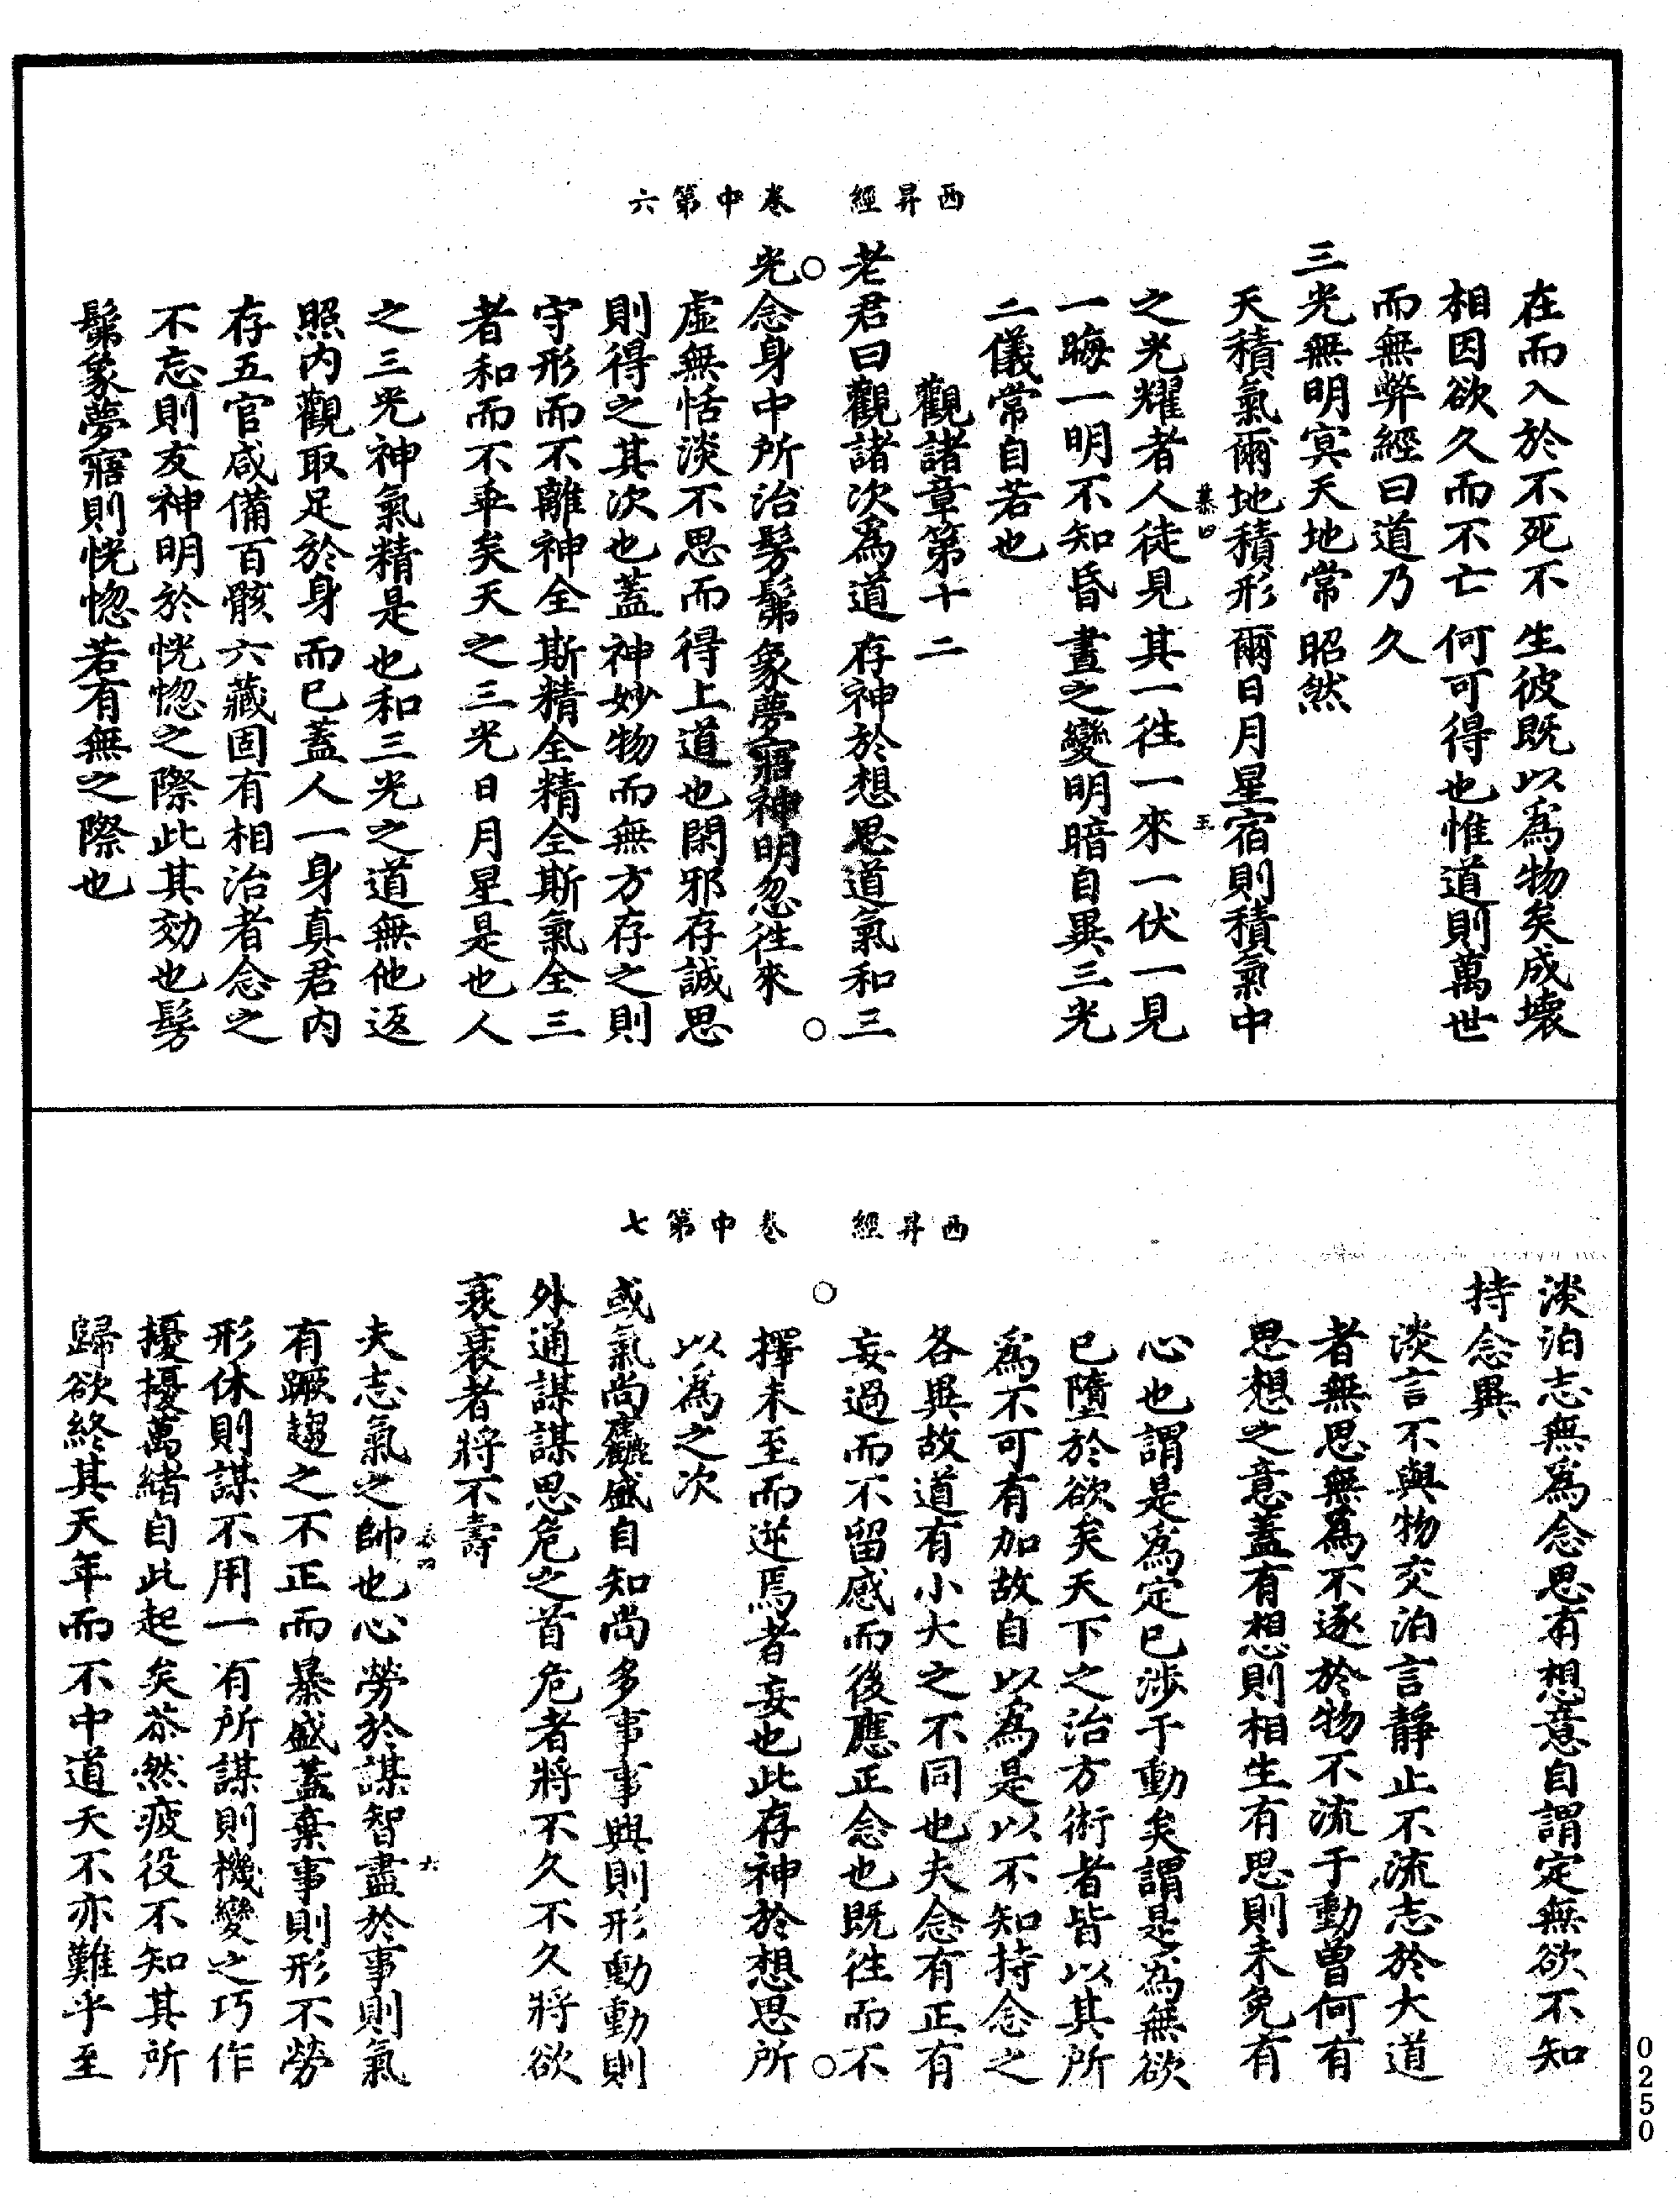 西昇經　卷中第六
在而入於不死不生彼既以為物矣成壞
相因欲久而不亡何可得也惟道則萬世
而無弊經曰道乃久
三光無明冥天地常昭然
天積氣爾地積形爾日月星宿則積氣中
慕四　五
之光耀者人徒見其一往一來一伏一見
一晦一明不知昏晝之變明暗自異三光
二儀常自若也
觀諸章第十二
老君曰觀諸次為道存神於想思道氣和三
光念身中所治髣髴象夢寤神明忽往來
虛無恬淡不思而得上道也閑邪存誠思
則得之其次也蓋神妙物而無方存之則
守形而不離神全斯精全精全斯氣全三
者和而不乖矣天之三光日月星是也人
之三光神氣精是也和三光之道無他返
照內觀取足於身而已蓋人一身真君內
存五官咸備百骸六藏固有相治者念之
不忘則友神明於恍惚之際此其効也髣
髴象夢寤則恍惚若有無之際也
西昇經　卷中第七
淡泊志無為念思有想意自謂定無欲不知
持念異
淡言不與物交泊言靜止不流志於大道
者無思無為不逐於物不流于動曾何有
思想之意蓋有想則相生有思則未免有
心也謂是為定已涉于動矣謂是為無欲
已墮於欲矣天下之治方術者皆以其所
為不可有加故自以為是以不知持念之
各異故道有小大之不同也夫念有正有
妄過而不留感而後應正念也既往而不
擇未至而逆焉者妄也此存神於想思所
以為之次
或氣尚麤盛自知尚多事事興則形動動則
外通謀謀思危之首危者將不久不久將欲
衰衰者將不壽
慕四　六
夫志氣之帥也心勞於謀智盡於事則氣
有蹶趨之不正而暴盛蓋棄事則形不勞
形休則謀不用一有所謀則機變之巧作
擾擾萬緒自此起矣苶然疲役不知其所
歸欲終其天年而不中道夭不亦難乎至
0250